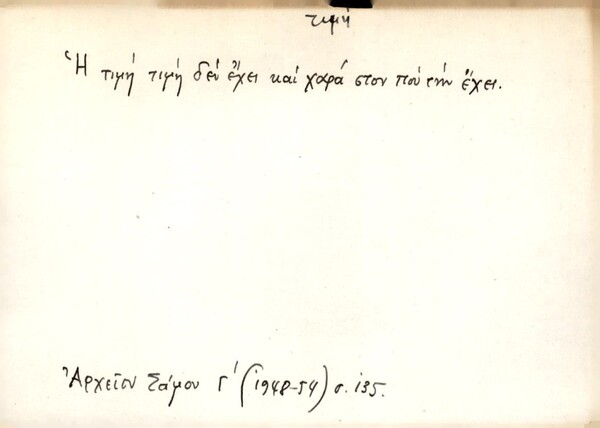 τιμή
Ἡ τιμή τιμή δέν ἔχει καί χαρά στον πού τήν ἔχει.
Ἀρχεῖον Σάμου Γ' (1948-54) σ. 135.